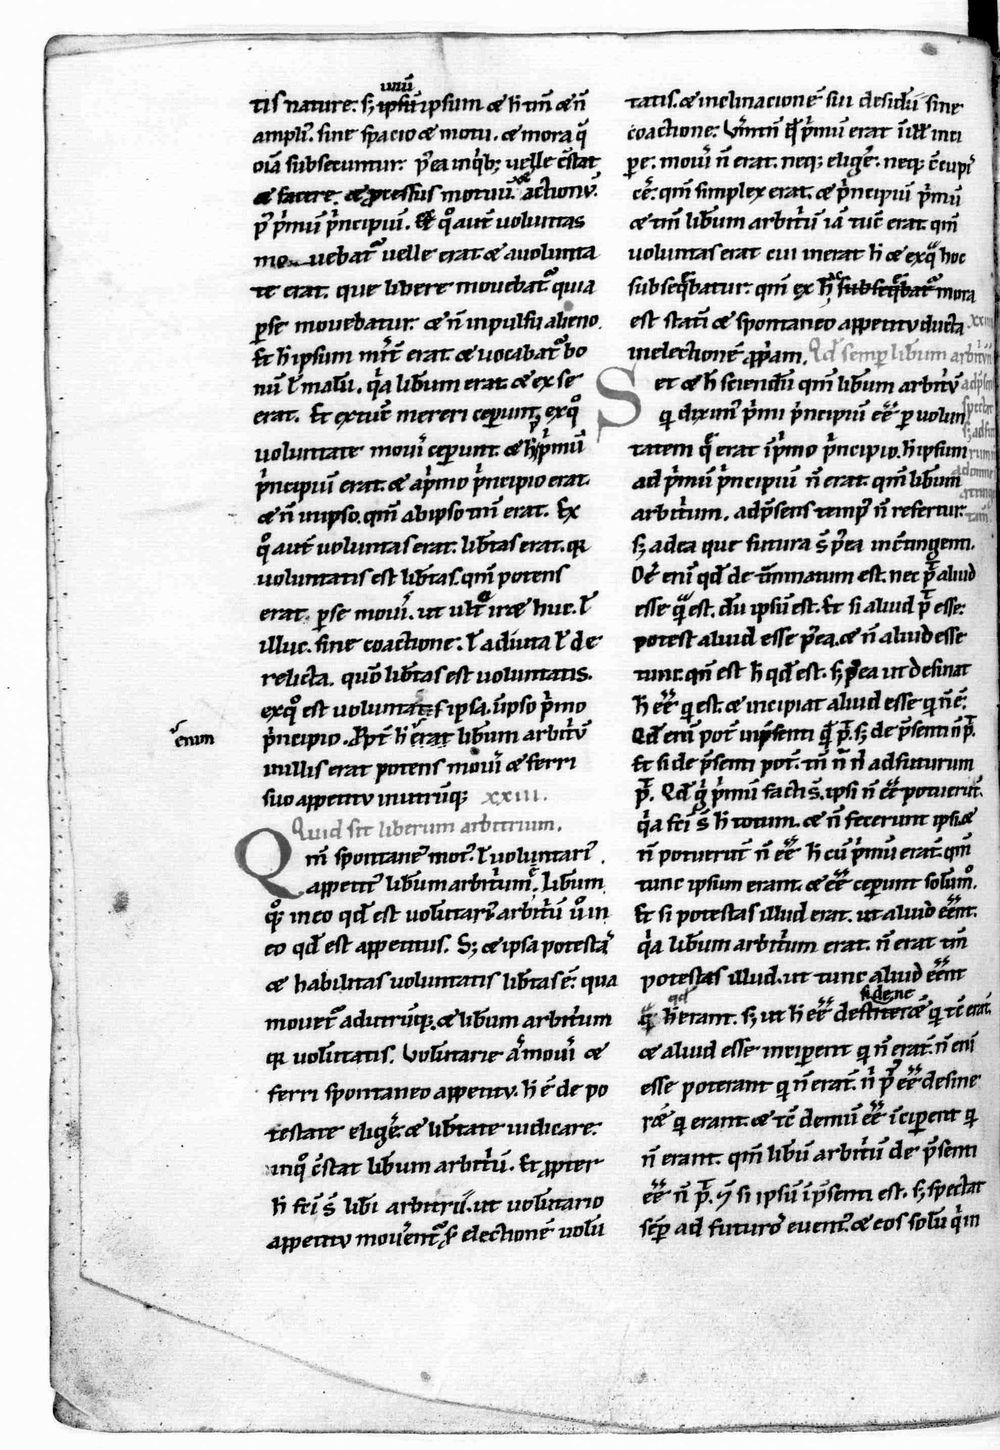 unū
tis nature. sꝫ ipsū ipsum & ħ tm̄ & n̄
ampliꝰ. sine spacio & motu. & mora q̄
oīa subsecuntur. pꝰea inqͥbꝫ uelle ↄ̄stat
& facere. & ꝓcessus motuū & actionū.
pꝰ pͥmū pͥncipiū. Ex qͦ aut̄ uoluntas
mouebatᷣ uelle erat. & auolunta
te erat. que libere mouebatᷣ quia
ꝑse mouebatur. & n̄ inpulsu alieno.
Et ħ ipsum mͥt̄ erat & uocabatᷣ bo
nū ł malū. qͥa lib̄um erat & ex se
erat. Et extūc mereri ceperunt, exqͦ
uoluntate mouͥ ceperunt. & ħ pͥmū
pͥncipiū erat. & apͥmo pͥncipio erat.
& n̄ inipso. qm̄ abipso tm̄ erat. Ex
qͦ aut̄ uoluntas erat. lib̄tas erat. qꝛ
uoluntatis est lib̄tas. qm̄ potens
erat. ꝑse mouͥ. ut ult̄ iret huc. ł
illuc. sine coactione. ł adiuta ł de
relicta. quō lib̄tas est uoluntatis.
exqͦ est uoluntas ipsa. inipso pͥmo
pͥncipio. Ppt̄ ħ erat lib̄um arbitͥū
inillis erat potens mouͥ & ferri
suo appetitu inutrūqꝫ xxiii.
c̄enim
Quid sit liberum arbitrium.
Qm̄ spontaneꝰ motꝰ ł uoluntariꝰ
appetitꝰ lib̄um arbitͥum ē. lib̄um
qͦꝫ in eo qd̄ est uolūtariꝰ arbitͥū uͦ in
eo qd̄ est appetitus. Sꝫ & ipsa potestaˢ
& habilitas uoluntatis lib̄tas ē. qua
mouet̄ᷣ adutrūqꝫ. & lib̄um arbitͥum
qꝛ uolūtatis. Volūtarie aͭ mouͥ &
ferri spontaneo appetitu. ħ ē de po
testate eligē. & lib̄tate iudicare.
inqͦ ↄ̄stat lib̄um arbitͥū. Et ꝓpter
ħ fcī s̄ lib̄i arbitrii. ut uolūtario
appetitu mouēntᷣ ꝑ electionē uolū
tatis. & inclinacionē sui desiderii sine
coactione. Vn̄tn̄ qd̄ pͥmū erat ī illis inci
pe. mouͥ n̄ erat. neqꝫ eligē. neqꝫ ↄ̄cupi
cē. qm̄ simplex erat. & pͥncipiū pͥmū
& tm̄ lib̄um arbitͥū iā tūc erat. qm̄
uoluntas erat cui inerat ħ & exqͣ hoc
subseqͣbatur. qm̄ ex ħ subseqͣbatᷣ mora
est statī & spontaneo appetitu ducta
inelectionē ꝓpͥam. Qd̄ semꝑ lib̄um arbitͥū
Set & ħ sciendū qm̄ lib̄um arbitͥū
qͥ diximꝰ pͥmū pͥncipiū ēē ꝑ uolun
tatem qͣ erat ī pͥmo pͥncipio. ħ ipsum
ad pͥmū pͥncipiū n̄ erat. qm̄ lib̄um
arbitͥum. adpͥsens tempꝰ n̄ refertur.
sꝫ adea que futura s̄ pꝰea inↄ̄tingenti.
Oē enī qd̄ de tm̄inatum est. nec pt̄ aliud
esse qͣ est. dū ipsū est. Et si aliud pt̄ esse:
potest aliud esse pꝰea. & n̄ aliud esse
tunc. qn̄ est ħ qd̄ est. sꝫ pꝰea ut desinat
ħ ēē qͥ est. & incipiat aliud esse qͥ n̄ ē.
Qd̄ enī pot̄ inpͥsenti qd̄ pt̄. sꝫ de pͥsenti n̄ pt̄.
Et si de pͥsenti pot̄. tn̄ n̄ nͥ adfuturum
pt̄. Qd̄ gͦ pͥmū facti s̄. ipsi n̄ ēē potuerūt.
qͥa fcī s̄ ħ totum. & n̄ fecerunt ipsi &
n̄ potuerūt n̄ ēē ħ cū pͥmū erāt. qm̄
tunc ipsum erant. & ēē ceperunt solūmͦ.
Et si potestas illud erat. ut aliud ēēnt.
qͥa lib̄um arbitͥum erat. n̄ erat tm̄
potestas illud. ut tunc aliud ēēnt
qd̄
ħ erant. sꝫ ut ħ ēē desinerēt & qͥ tc̄ erāt.
& aliud esse inciperent qͥ n̄ erāt. n̄ enī
esse poterant qͥ n̄ erāt. nͥ pꝰ ēē desine
rēt qͥ erant. & tc̄ demū ēē īciperent qͥ
n̄ erant. qm̄ libū arbitͥū de pͥsenti
ēē n̄ pt̄. & si ipsū īpͥsenti est. sꝫ spectat
semꝑ ad futuroꝝ euentꝰ. & eos solū qͥ in